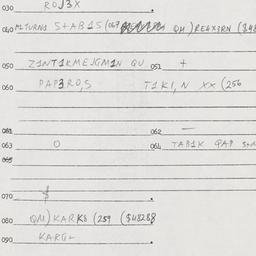 030 ROJ3X
040 MLTURNS S+AB1S (067 QM) RE4X3RN ($48
050 Z1NT1KMEJGM1N QU 051 +
060 PAP3RO,S T1K1,N XX (256
061 062 —
063 0 064 TAB1K PAP
065
070 $
080 QM) KARK8 (259 ($48288
090 KARTL